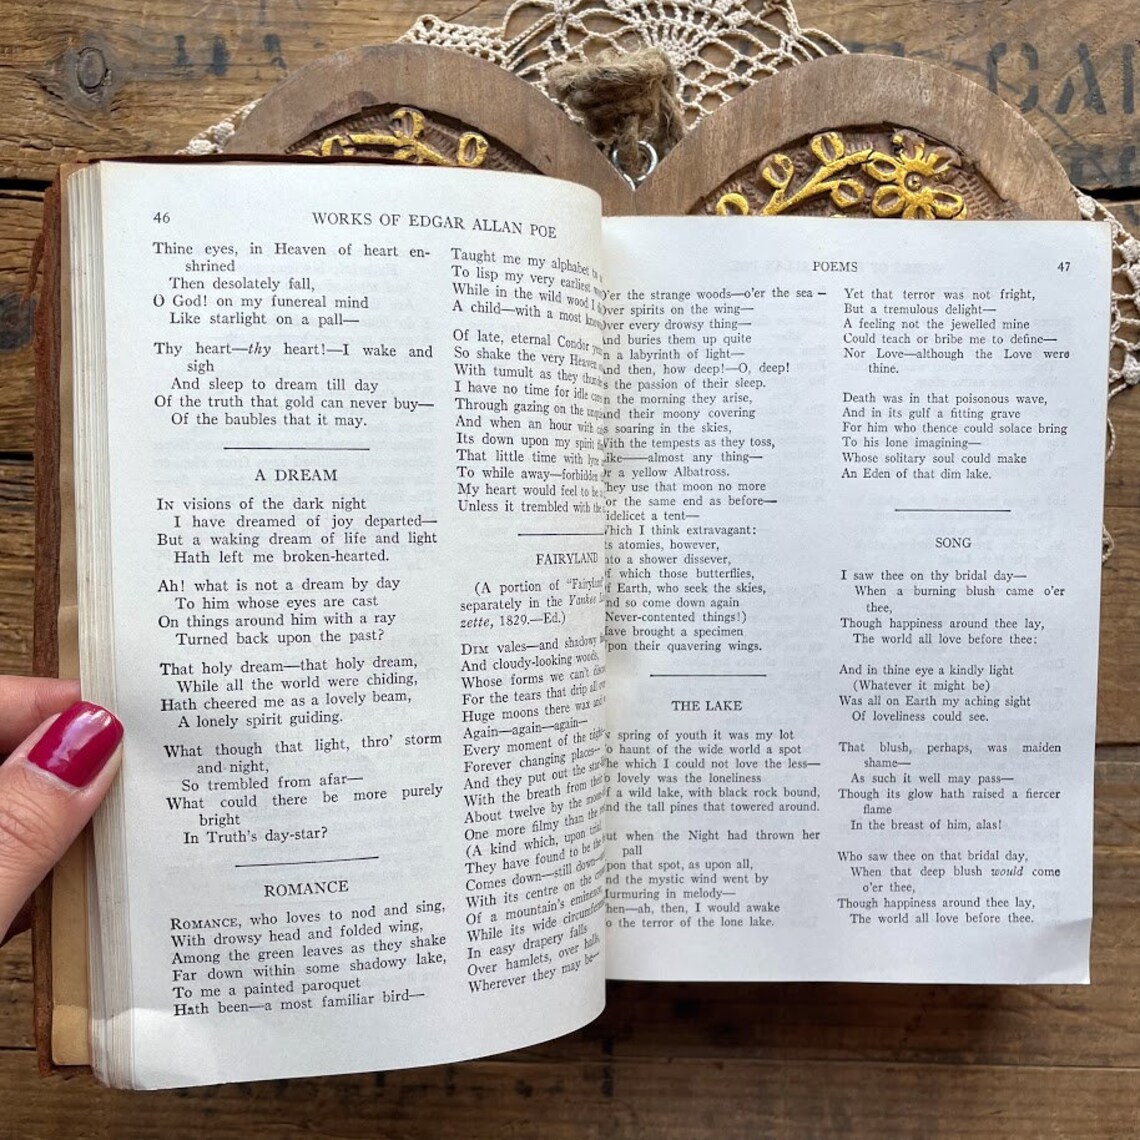 46
WORKS OF EDGAR ALLAN POE
Thine eyes, in Heaven of heart en-
shrined
Then desolately fall,
O God! on my funereal mind
Like starlight on a pall—
Thy heart—thy heart!—I wake and
sigh
And sleep to dream till day
Of the truth that gold can never buy—
Of the baubles that it may.
A DREAM
IN visions of the dark night
I have dreamed of joy departed—
But a waking dream of life and light
Hath left me broken-hearted.
Ah! what is not a dream by day
To him whose eyes are cast
On things around him with a ray
Turned back upon the past?
That holy dream—that holy dream,
While all the world were chiding,
Hath cheered me as a lovely beam,
A lonely spirit guiding.
What though that light, thro' storm
and night,
So trembled from afar—
What could there be more purely
bright
In Truth's day-star?
ROMANCE
ROMANCE, who loves to nod and sing,
With drowsy head and folded wing,
Among the green leaves as they shake
Far down within some shadowy lake,
To me a painted paroquet
Hath been—a most familiar bird—
Taught me my alphabet to
To lisp my very earliest
While in the wild wood I
A child—with a most
Of late, eternal Condor
So shake the very
With tumult as they
I have no time for idle
Through gazing on the
And when an hour with
Its down upon my spirit
That little time with lyre
To while away—forbidden
My heart would feel to be
Unless it trembled with the
FAIRYLAND
(A portion of
separately in the Yankee
zette, 1829.—Ed.)
DIM vales—and shadowy
And cloudy-looking woods,
Whose forms we can't
For the tears that drip all
Huge moons there wax and
Again—again—again—
Every moment of the
Forever changing places—
And they put out the
With the breath from
About twelve by the
One more filmy than the
(A kind which, upon
They have found to be the
Comes down—still down—
With its centre on the
Of a mountain's eminence,
While its wide
In easy drapery falls
Over hamlets, over halls,
Wherever they may be—
POEMS
47
the strange woods—o'er the sea—
spirits on the wing—
every drowsy thing—
buries them up quite
a labyrinth of light—
then, how deep!—O, deep!
the passion of their sleep.
the morning they arise,
their moony covering
soaring in the skies,
With the tempests as they toss,
almost any thing—
a yellow Albatross.
use that moon no more
the same end as before—
a tent—
Which I think extravagant:
atomies, however,
a shower dissever,
which those butterflies,
Earth, who seek the skies,
so come down again
(Never-contented things!)
brought a specimen
their quavering wings.
THE LAKE
spring of youth it was my lot
haunt of the wide world a spot
which I could not love the less—
lovely was the loneliness
a wild lake, with black rock bound,
the tall pines that towered around.
when the Night had thrown her
pall
that spot, as upon all,
the mystic wind went by
in melody—
ah, then, I would awake
the terror of the lone lake.
Yet that terror was not fright,
But a tremulous delight—
A feeling not the jewelled mine
Could teach or bribe me to define—
Nor Love—although the Love were
thine.
Death was in that poisonous wave,
And in its gulf a fitting grave
For him who thence could solace bring
To his lone imagining—
Whose solitary soul could make
An Eden of that dim lake.
SONG
I saw thee on thy bridal day—
When a burning blush came o'er
thee,
Though happiness around thee lay,
The world all love before thee:
And in thine eye a kindly light
(Whatever it might be)
Was all on Earth my aching sight
Of loveliness could see.
That blush, perhaps, was maiden
shame—
As such it well may pass—
Though its glow hath raised a fiercer
flame
In the breast of him, alas!
Who saw thee on that bridal day,
When that deep blush would come
o'er thee,
Though happiness around thee lay,
The world all love before thee.